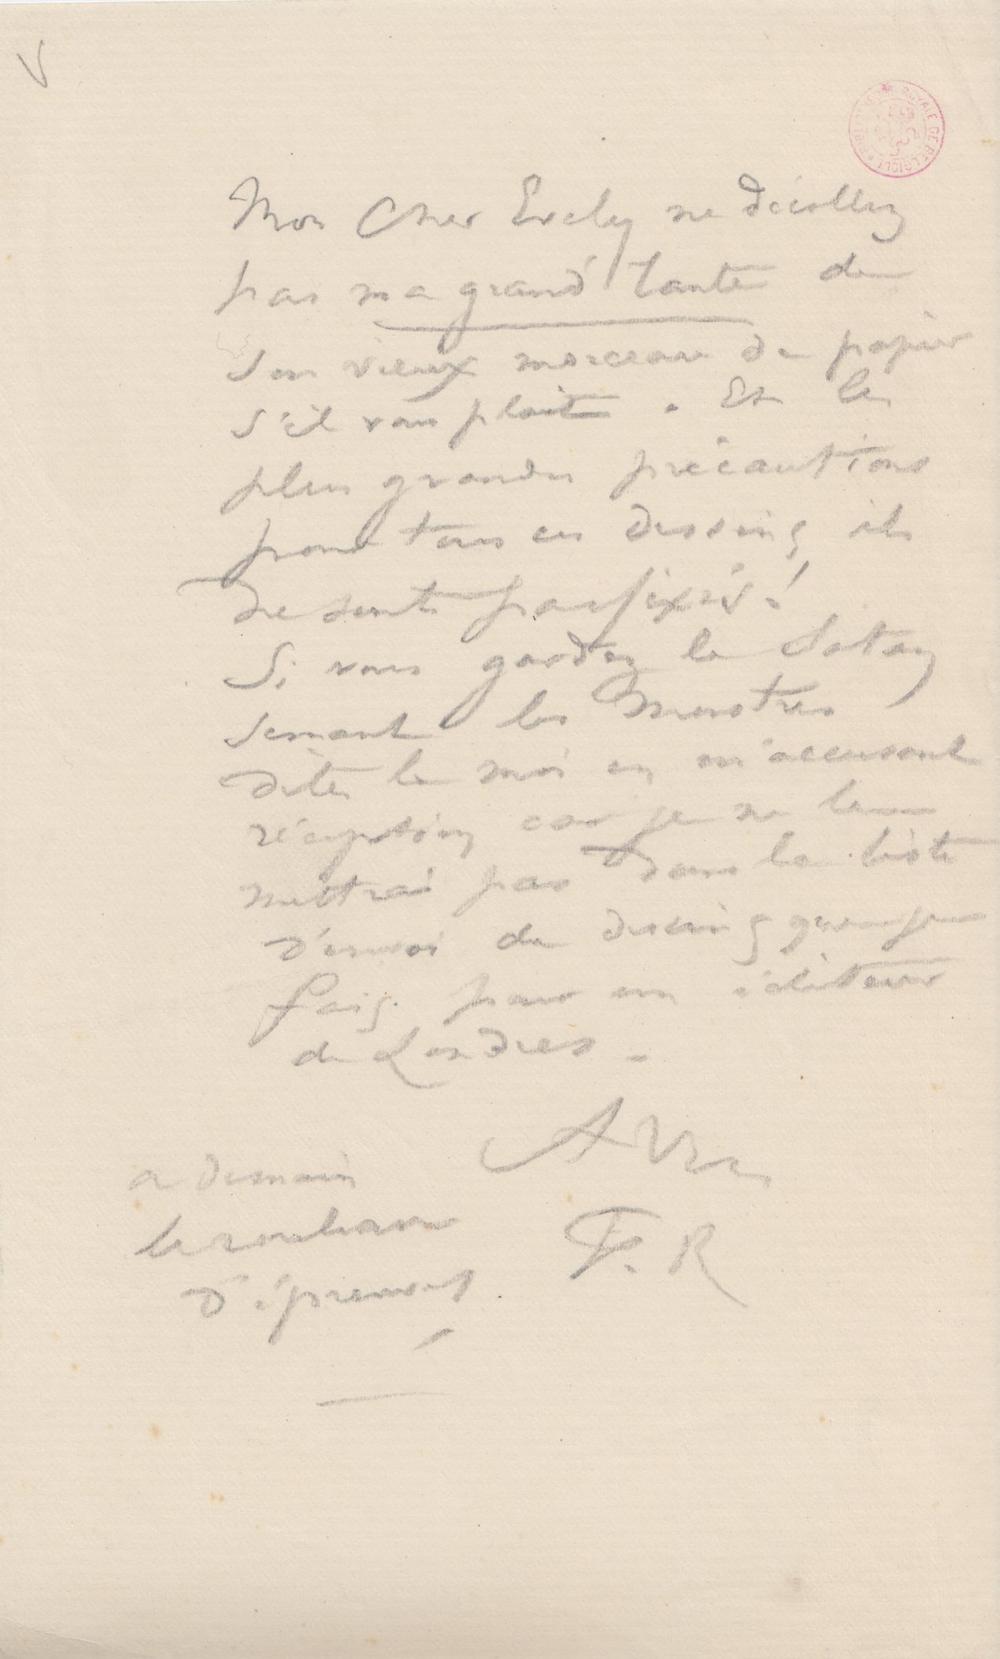 Mon Cher Evely ne décollez
pas ma grand' tante de
son vieux morceau de papier
s'il vous plait. Et les
plus grandes précautions
pour tous ces dessins, ils
ne sont pas fixés!
Si vous gardez le Satan
semant les Monstres
dites le moi en m'accusant
réception car je ne le
mettrai pas dans la liste
d'envoi de dessins que je
fais pour un éditeur
de Londres.
A Vs
F. R
a demain
le rouleau
d'épreuves